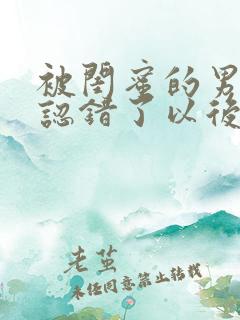 被閨蜜的男
認錯了以後
老茧
未经同意禁止转载